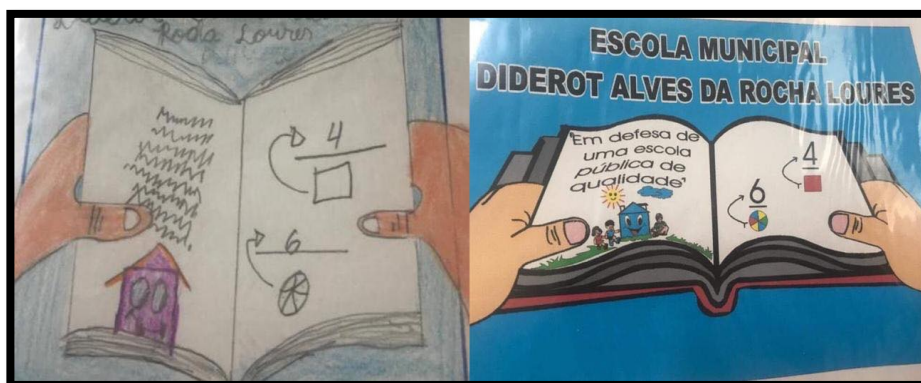 Rocha Loures
4
6
ESCOLA MUNICIPAL
DIDEROT ALVES DA ROCHA LOURES
"Em defesa de
uma escola
pública de
qualidade"
4
6